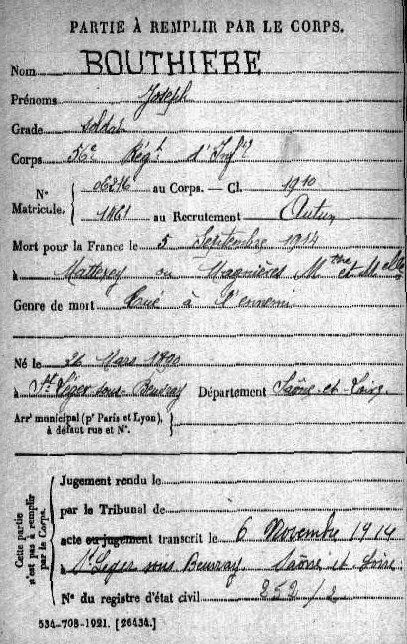 PARTIE À REMPLIR PAR LE CORPS.
Nom BOUTHIERE
Prénoms Joseph
Grade soldat
Corps 56e Régt d'Infie
N° Matricule. 06216 au Corps. — Cl. 1910
1461 au Recrutement Autun
Mort pour la France le 5 Septembre 1914
à Mattexey ou Magnières Mthe et Mlle
Genre de mort Tué à l'ennemi
Né le Mars 1890
à St Léger sous Beuvray Département Saône-et-Loire
Arrt municipal (pr Paris et Lyon), à défaut rue et N°.
Cette partie n'est pas à remplir par le Corps.
Jugement rendu le
par le Tribunal de
acte ou jugement transcrit le 6 Novembre 1914
à St Léger sous Beuvray Saône et Loire
N° du registre d'état civil 252/2
534-708-1921. [26434.]